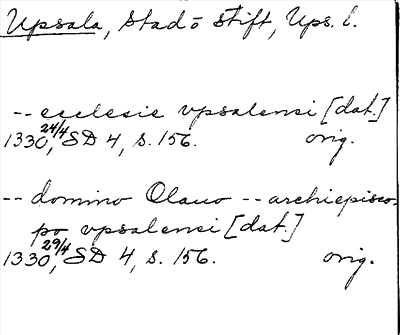 Upsala, stad o stift, Ups. l.
-- ecclesie vpsalensi [dat.]
1330 24/4, SD 4, s. 156. orig.
-- domino Olauo -- archiepisco-
po vpsalensi [dat.]
1330 29/4, SD 4, s. 156. orig.